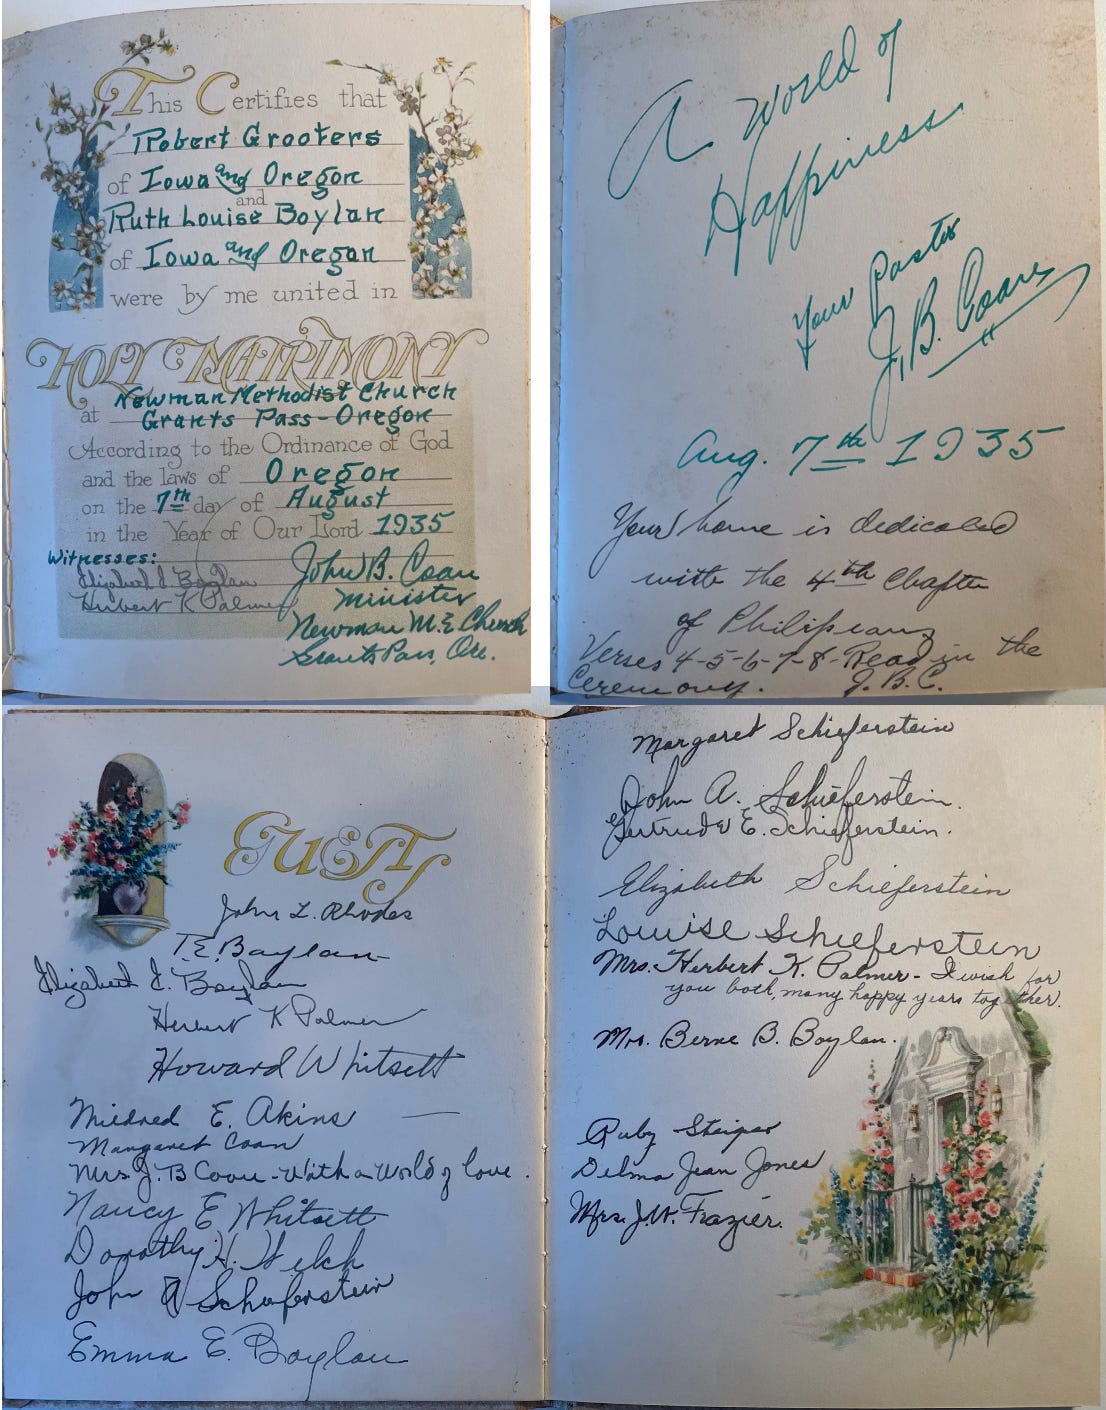 This Certifies that
Robert Grooters
of Iowa and Oregon
and
Ruth Louise Boylan
of Iowa and Oregon
were by me united in
HOLY MATRIMONY
at Newman Methodist Church
Grants Pass - Oregon
According to the Ordinance of God
and the laws of Oregon
on the 7th day of August
in the Year of Our Lord 1935
Witnesses:
Elizabeth I. Boylan
Herbert K Palmer
John B. Coan
Minister
Newman M.E Church
Grants Pass, Ore.
A World of
Happiness
Your Pastor
J.B. Coan
Aug. 7th 1935
Your home is dedicated
with the 4th Chapter
of Philipeans
Verses 4-5-6-7-8-Read in the
Ceremony. J.B.C.
GUEST
John L. Rhodes
T.E. Boylan
Elizabeth I. Boylan
Herbert K Palmer
Howard Whitsett
Mildred E. Akins
Margaret Coan
Mrs J.B Coan - With a World of love.
Nancy E Whitsett
Dorothy H. Welch
John A Schieferstein
Emma E. Boylan
Margaret Schieferstein
John A. Schieferstein.
Gertrude E. Schieferstein.
Elizabeth Schieferstein
Louise Schieferstein
Mrs. Herbert K. Palmer - I wish for
you both, many happy years together.
Mrs. Berne B. Boylan.
Ruby
Delma Jean Jones
Mrs. J.W. Frazier.